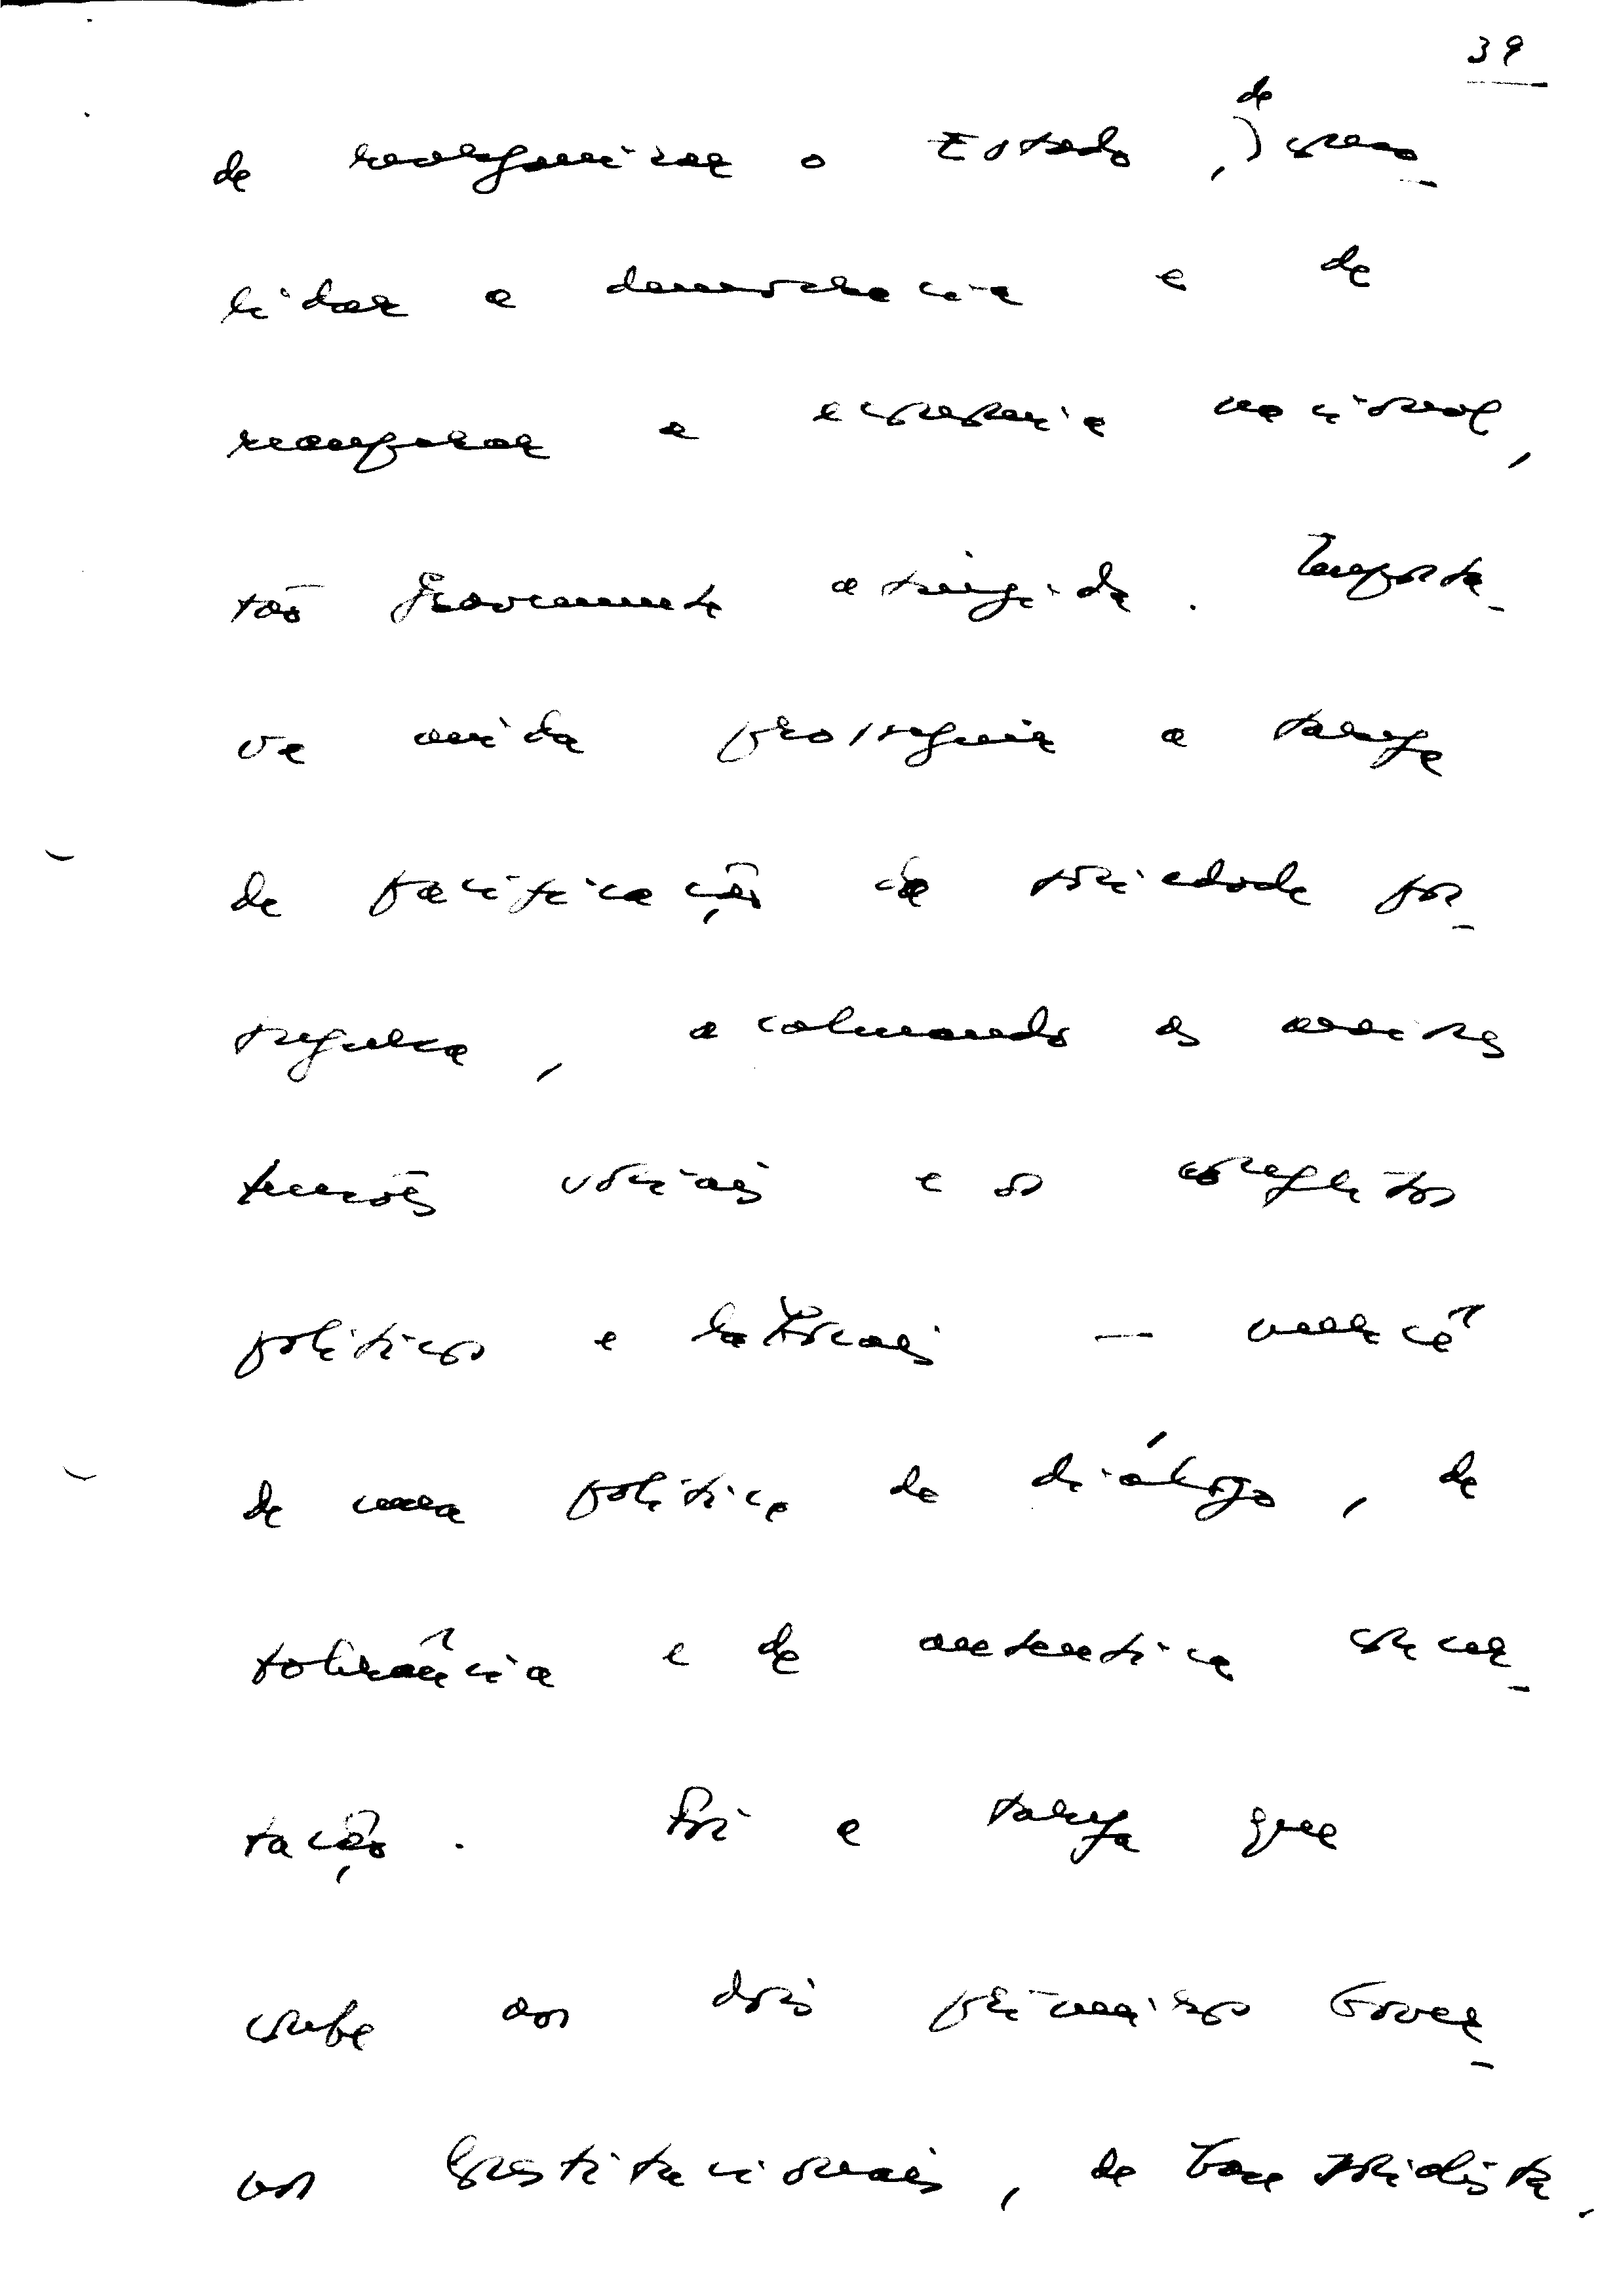 39
de
de reorganizar o Estado, conso-
lidar a democracia e de
recuperar a economia nacional,
tão gravemente atingida. Importa-
va ainda prosseguir a tarefa
de pacificação da sociedade por-
tuguesa, acalmando as
tensões sociais e os conflitos
políticos e laborais — mercê
de uma política de diálogo, de
tolerância e de autentica concer-
tação. Foi a tarefa que
coube aos dois primeiros Gover-
nos Constitucionais, de base socialista.